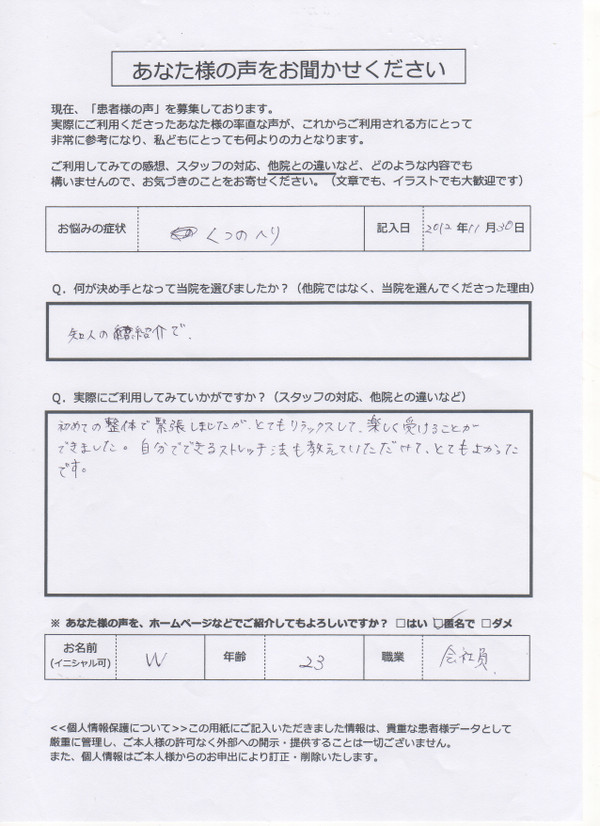 あなた様の声をお聞かせください
現在、「患者様の声」を募集しております。
実際にご利用くださったあなた様の率直な声が、これからご利用される方にとって
非常に参考になり、私どもにとっても何よりの力となります。
ご利用してみての感想、スタッフの対応、他院との違いなど、どのような内容でも
構いませんので、お気づきのことをお寄せください。（文章でも、イラストでも大歓迎です）
お悩みの症状 くつのへり 記入日 2012年11月30日
Q．何が決め手となって当院を選びましたか？（他院ではなく、当院を選んでくださった理由）
知人の紹介で.
Q．実際にご利用してみていかがですか？（スタッフの対応、他院との違いなど）
初めての整体で緊張しましたが、とてもリラックスして、楽しく受けることが
できました。自分でできるストレッチ法も教えていただけて、とてもよかった
です。
※ あなた様の声を、ホームページなどでご紹介してもよろしいですか？ □はい □匿名で □ダメ
お名前
(イニシャル可) W 年齢 23 職業 会社員
<<個人情報保護について>>この用紙にご記入いただきました情報は、貴重な患者様データとして
厳重に管理し、ご本人様の許可なく外部への開示・提供することは一切ございません。
また、個人情報はご本人様からのお申出により訂正・削除いたします。